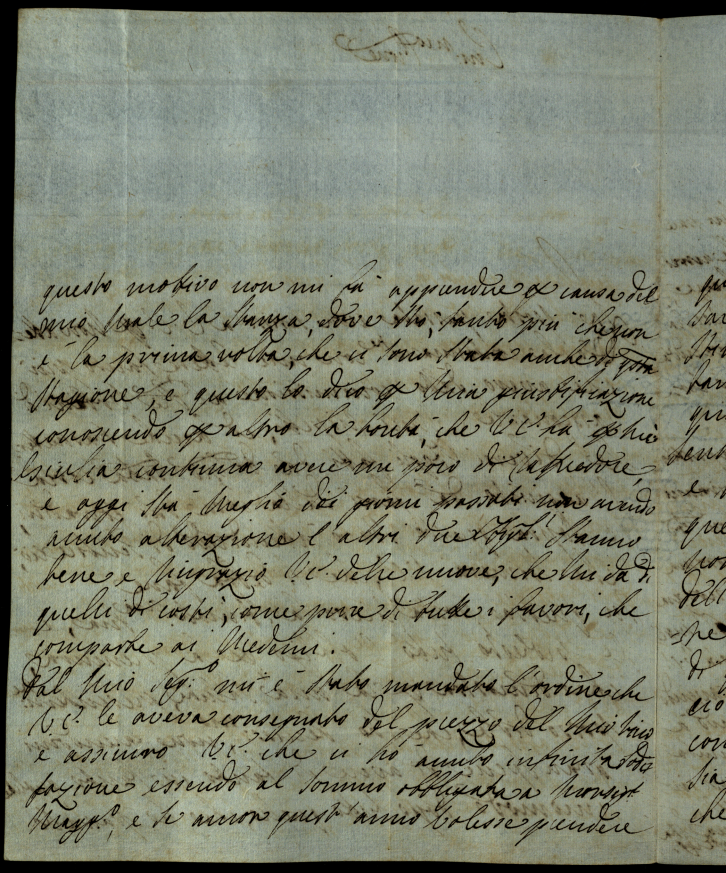 questo motivo non mi fà apprendere p causa del
mio Male la Stanza, dove Sto, tanto più che non
è la prima volta, che ci sono Stata anche di
Stagione, e questo lo dico p Una giustificazione
conoscendo p altro la bontà, che V.E. ha p Me
continua avere un poco di
e oggi Stà Meglio dei giorni passati non avendo
avuto alterazione l'altri due Stanno
bene e Ringrazio V.E. delle nuove, che Mi da di
quelli di costì, come pure di tutte i favori, che
comparte ai Medemi.
Dal Mio mi è Stato mandato l'ordine che
V.E. le aveva consegnato del prezzo del Mio
e assicuro V.E. che ci hò avuto infinita sodis
fazione essendo al Sommo obbligata a Monsig.r
Magg.o, e se ancor quest'anno Volesse prendere